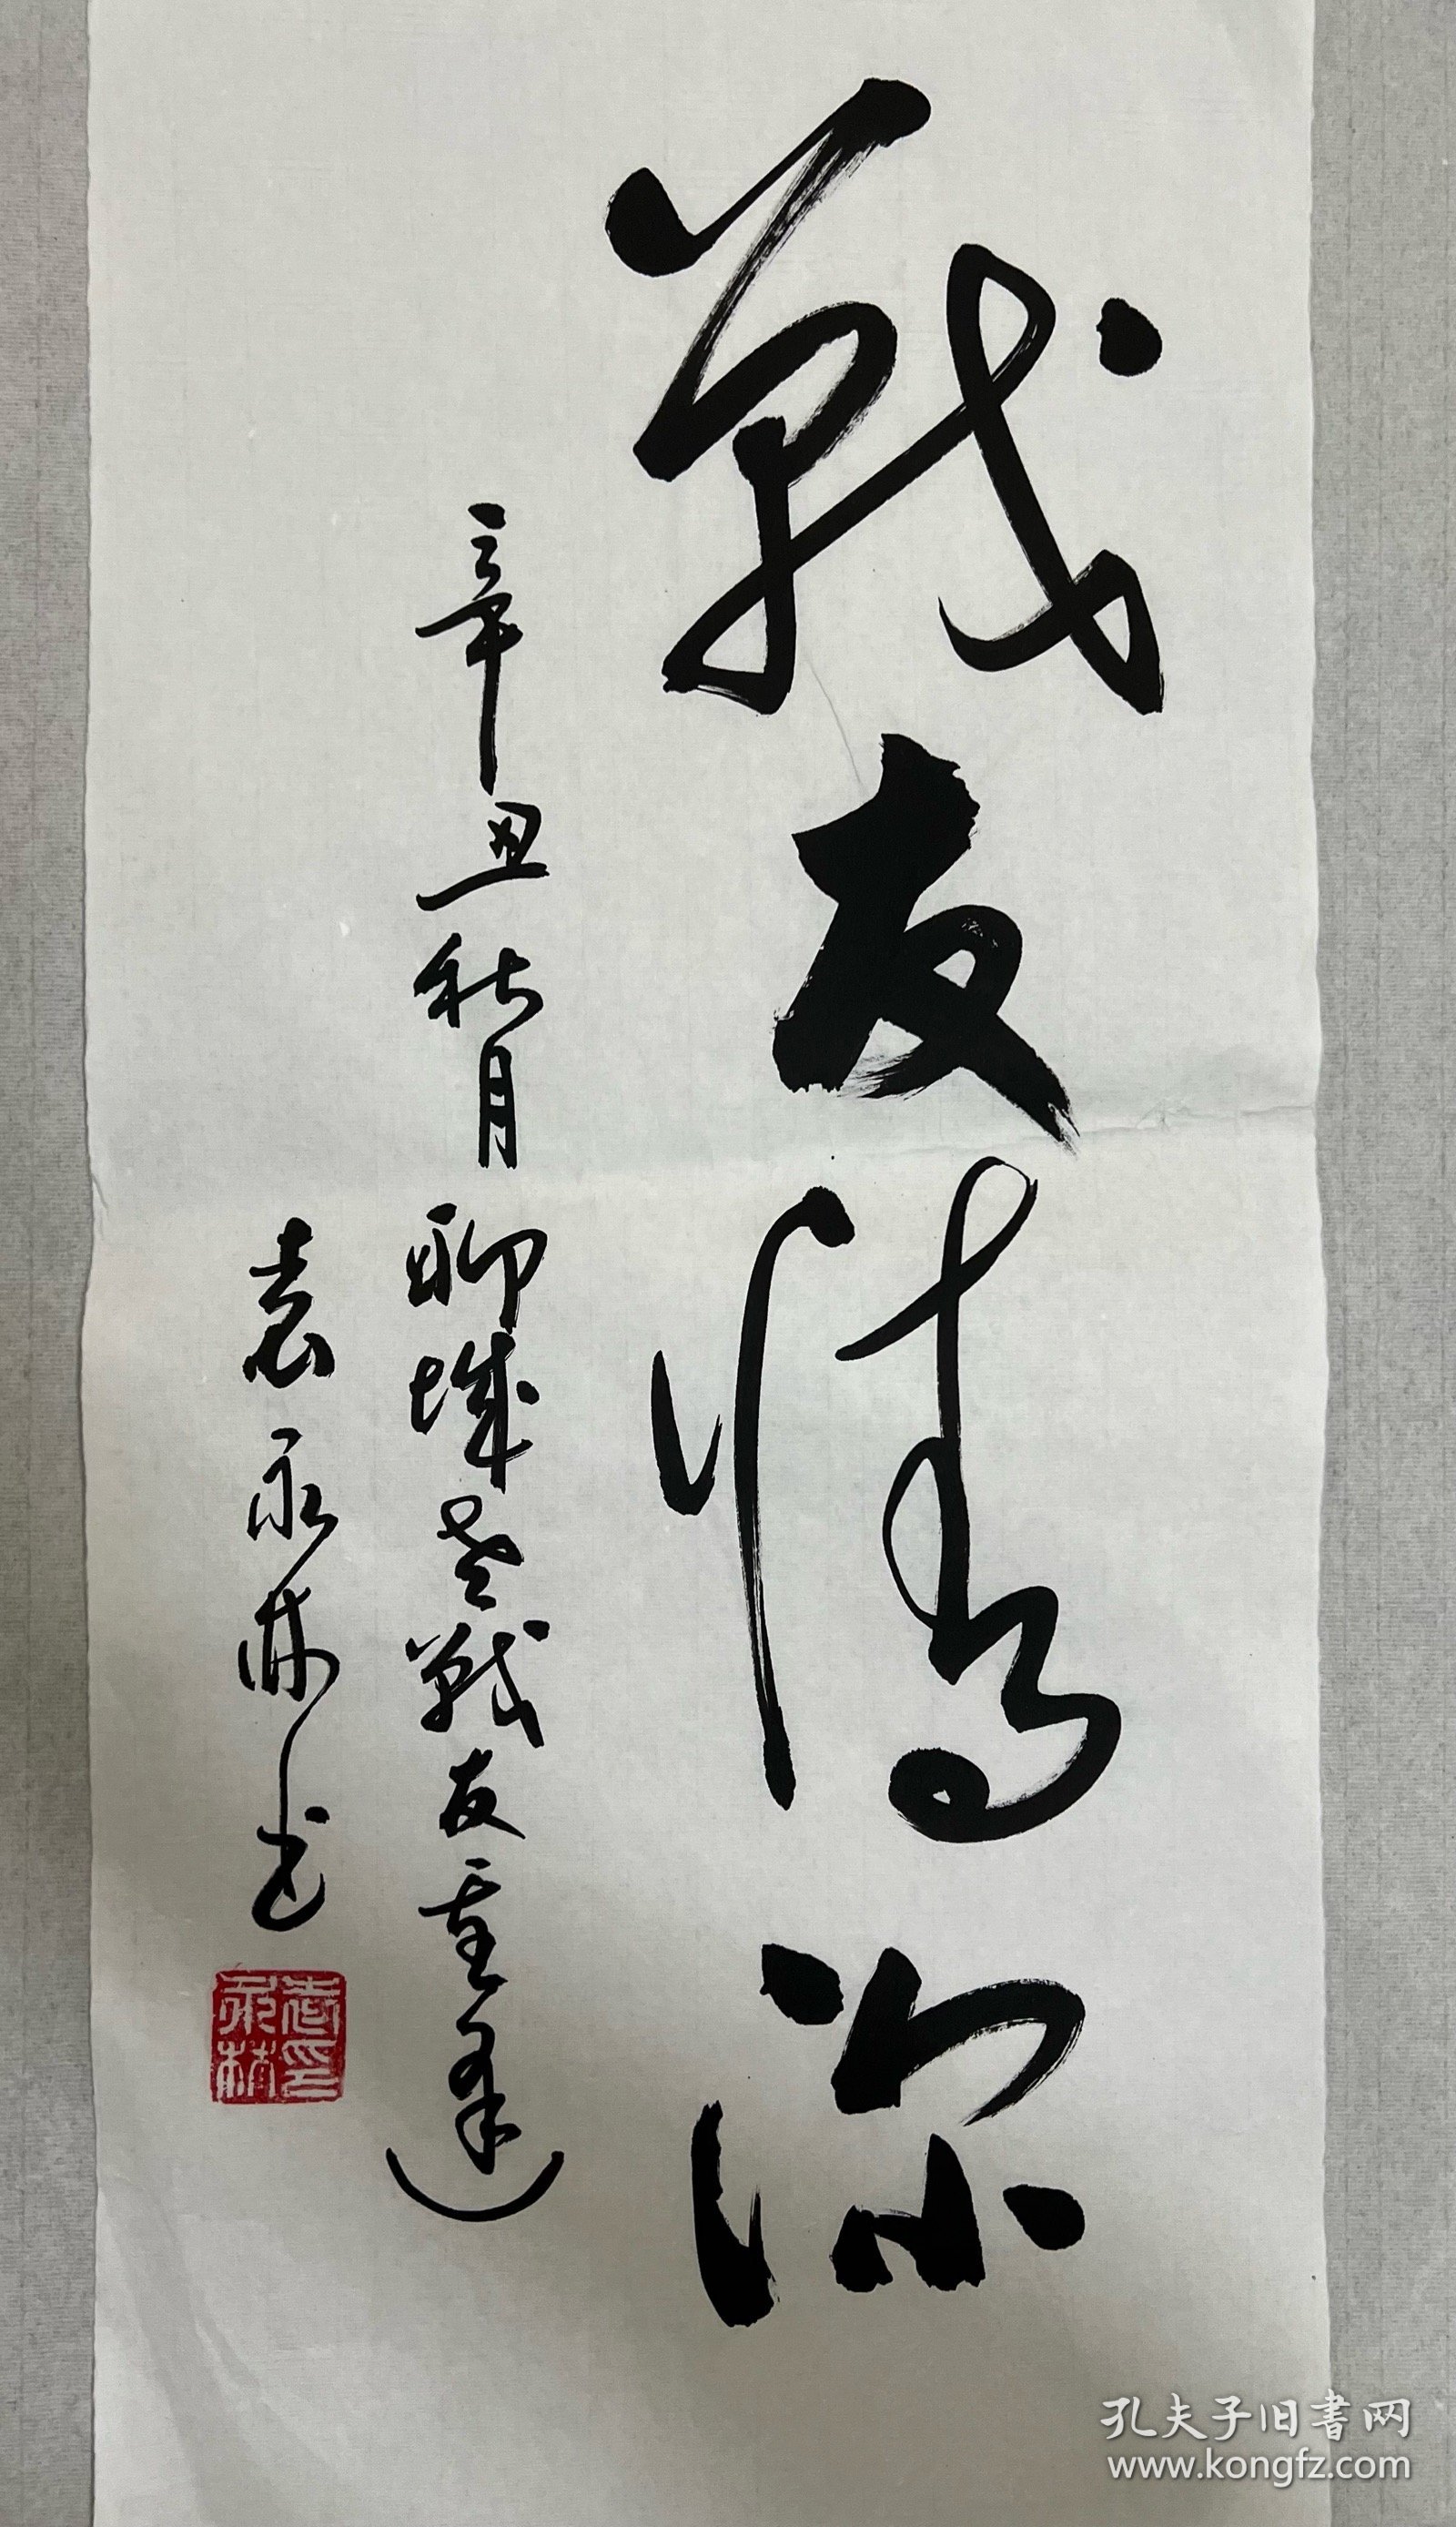 戰友情深
辛丑秋月聊城老戰友重逢
袁永林书
袁永林印
孔夫子旧書网
www.kongfz.com